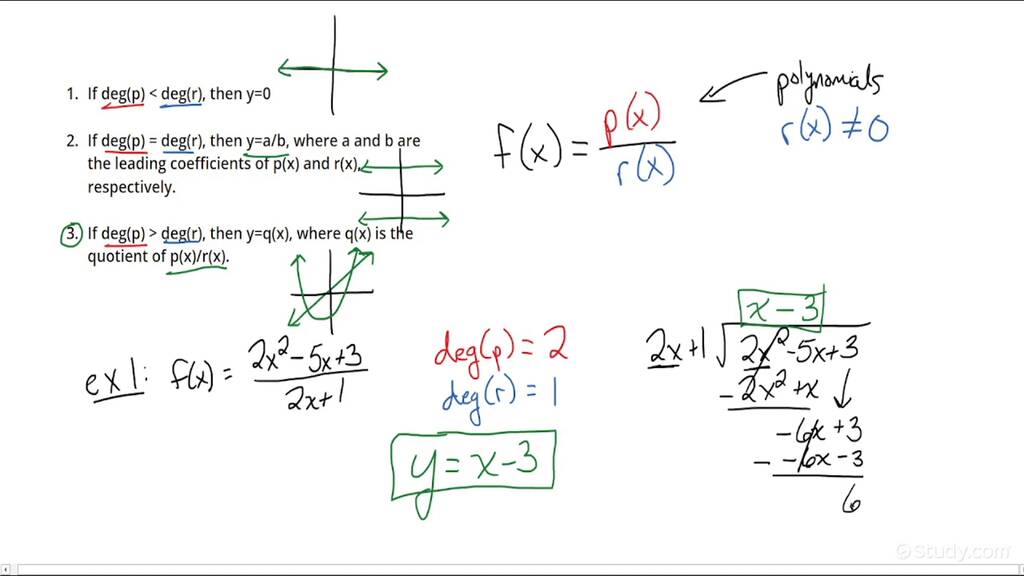 1. If deg(p) < deg(r), then y=0
2. If deg(p) = deg(r), then y=a/b, where a and b are
the leading coefficients of p(x) and r(x),
respectively.
3. If deg(p) > deg(r), then y=q(x), where q(x) is the
quotient of p(x)/r(x).
f(x) = p(x)/r(x)
polynomials
r(x) ≠ 0
ex 1: f(x) = 2x²-5x+3/2x+1
deg(p) = 2
deg(r) = 1
y = x-3
x-3
2x+1 √2x²-5x+3
-2x²+x ↓
-6x+3
- -6x-3
6
©Study.com